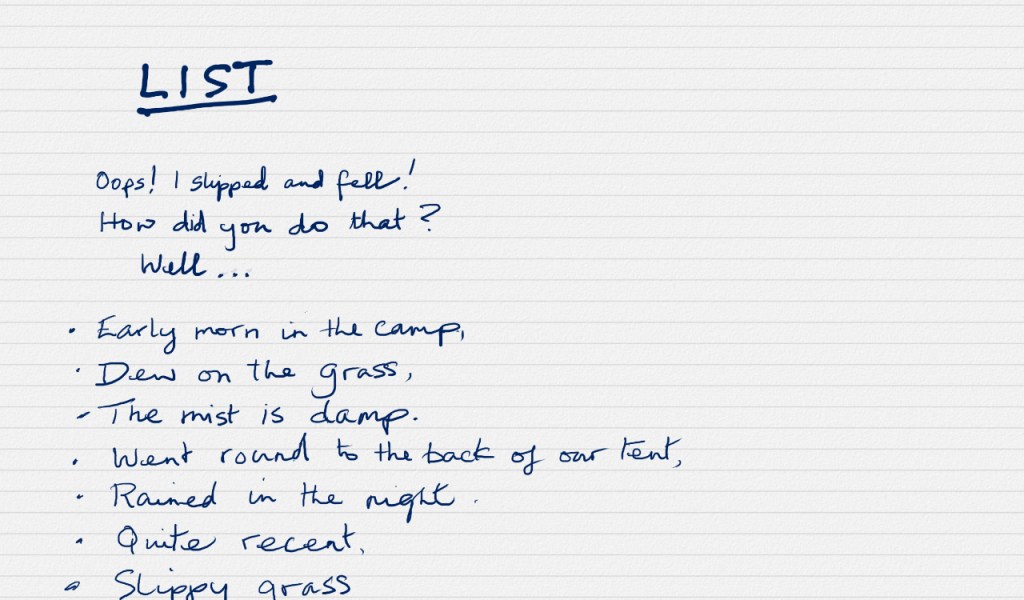 LIST
Oops! I slipped and fell!
How did you do that?
Well...
• Early morn in the camp,
• Dew on the grass,
- The mist is damp.
• Went round to the back of our tent,
• Rained in the night.
• Quite recent,
• Slippy grass